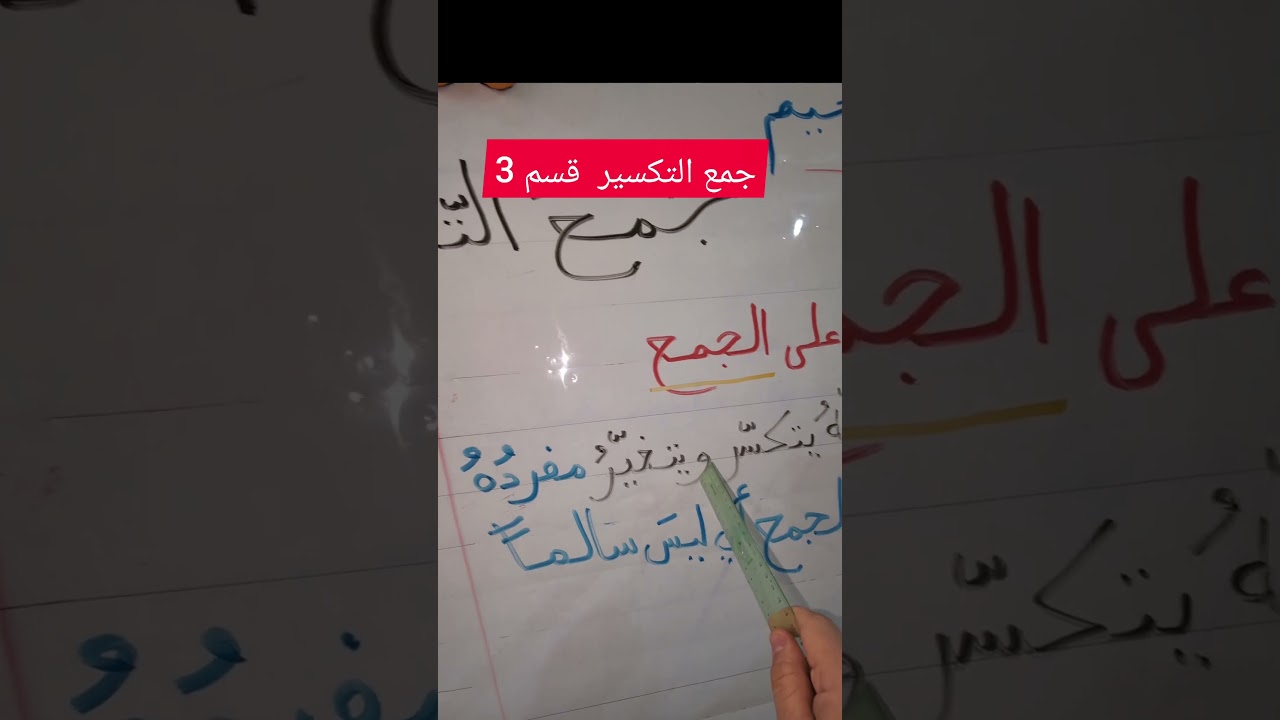 جمع التكسير قسم 3
جمع
على الجمع
يتكسّر ويتغيّرُ مفردُهُ
الجمع أي ليسَ سالماً